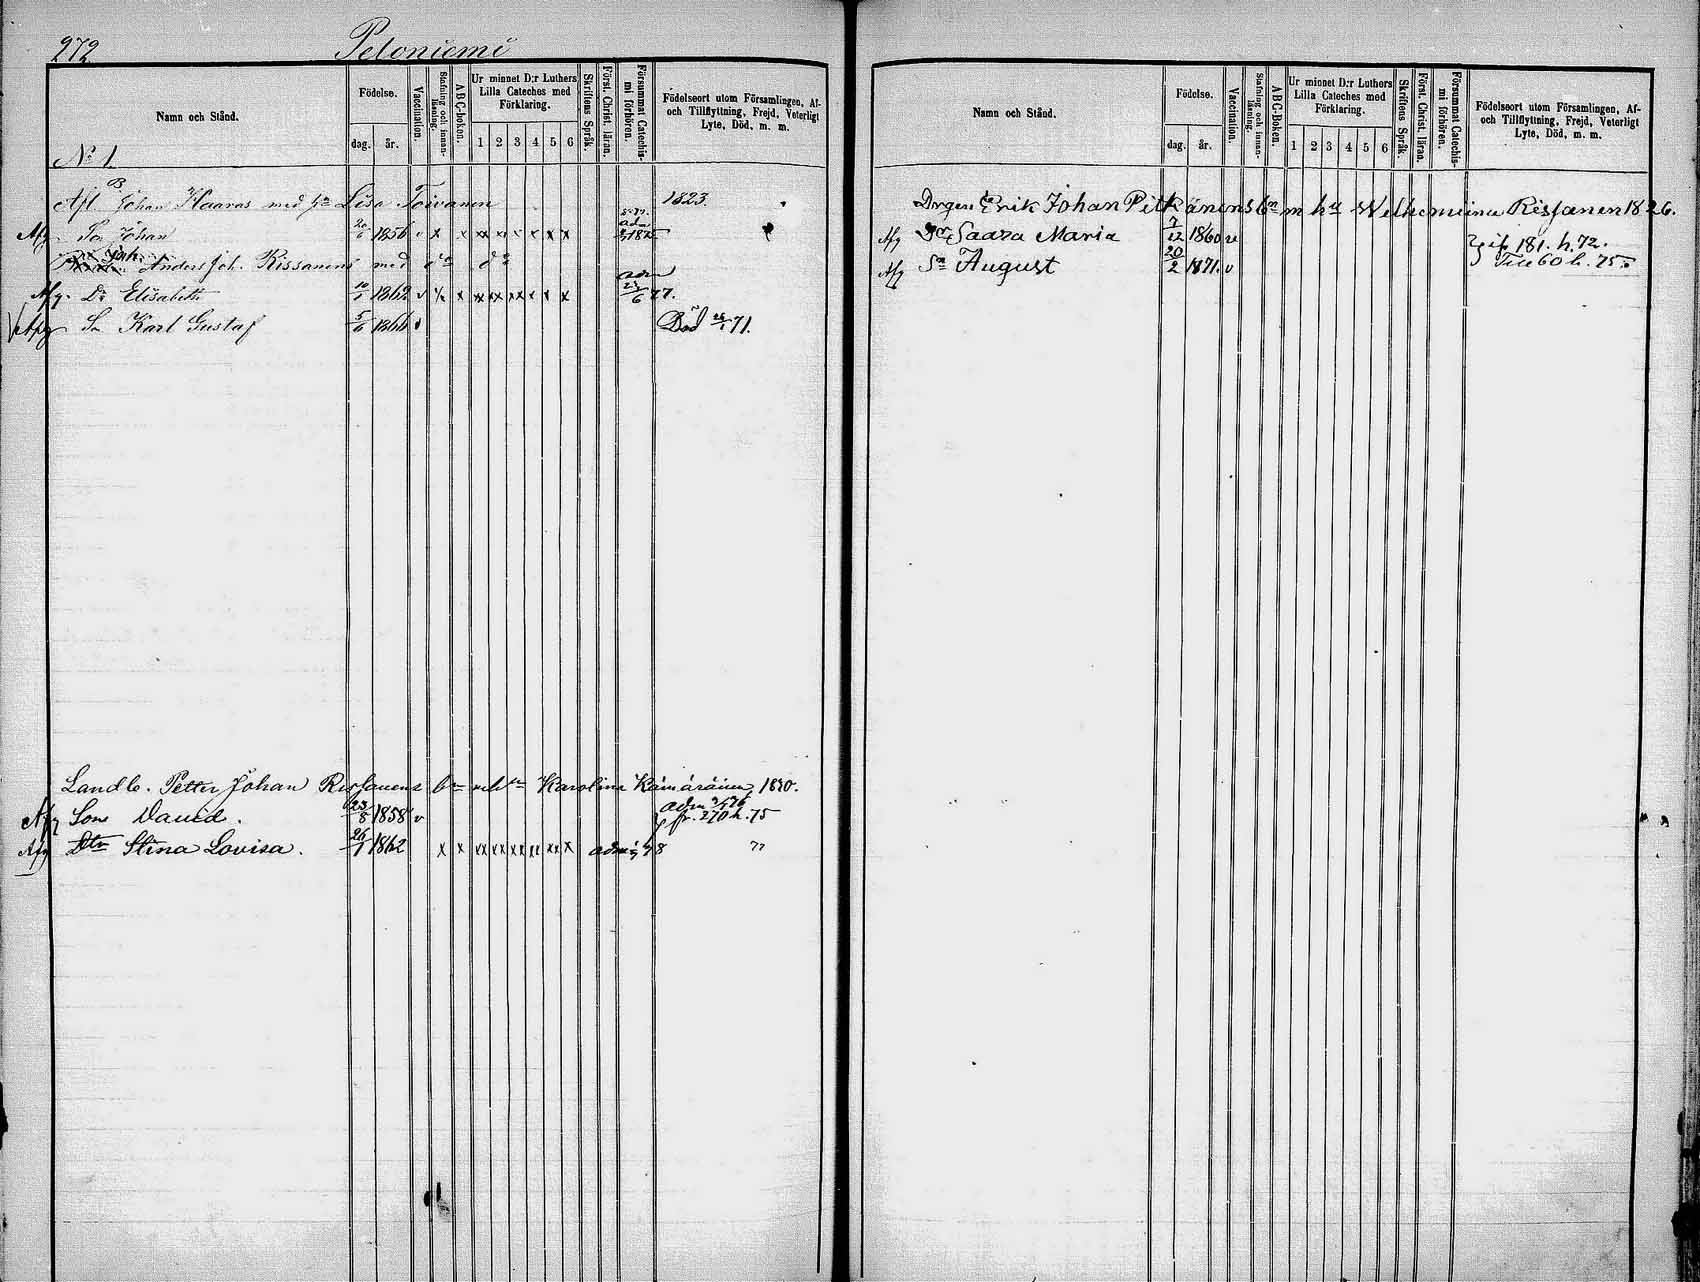 272 Peltoniemi
Namn och Stånd.
Födelse.
dag. år.
Vaccination.
Stafning och innanläsning.
ABC-boken.
Ur minnet D:r Luthers Lilla Cateches med Förklaring.
1 2 3 4 5 6
Skriftens Språk.
Först. Christ. läran.
Försummat Catechismi förhören.
Födelseort utom Församlingen, Af- och Tillflyttning, Frejd, Veterligt Lyte, Död, m. m.
No 1
Johan Haaras med hu Lisa Toivanen 1823.
Afg So Johan 20/6 1856 v x x xx x x x x x
Anders Joh. Rissanens med do do
Afg. Dr Elisabeth 10/1 1862 v x x xx xx xx x x x adm 24/6 77.
Afg So Karl Gustaf 5/6 1866 v Död 26/1 71.
Landb. Petter Johan Rissanens bn m hu Karolina Kämäräinen 1820.
Afg Son David. 23/8 1858 v fr. 270 h. 75
Afg Dtr Stina Lovisa. 26/1 1862 x x xx xx xx xx xx x 78 77
Namn och Stånd.
Födelse.
dag. år.
Vaccination.
Stafning och innanläsning.
ABC-Boken.
Ur minnet D:r Luthers Lilla Cateches med Förklaring.
1 2 3 4 5 6
Skriftens Språk.
Först. Christ. läran.
Försummat Catechismi förhören.
Födelseort utom Församlingen, Af- och Tillflyttning, Frejd, Veterligt Lyte, Död, m. m.
Drgen Erik Johan Pitkänens bn m hu Welhemiina Rissanen 1826.
Afg Dr Saara Maria 7/12 1860 v if 181. h. 72.
Afg Sn August 20/2 1871. v Till 60 h. 75.